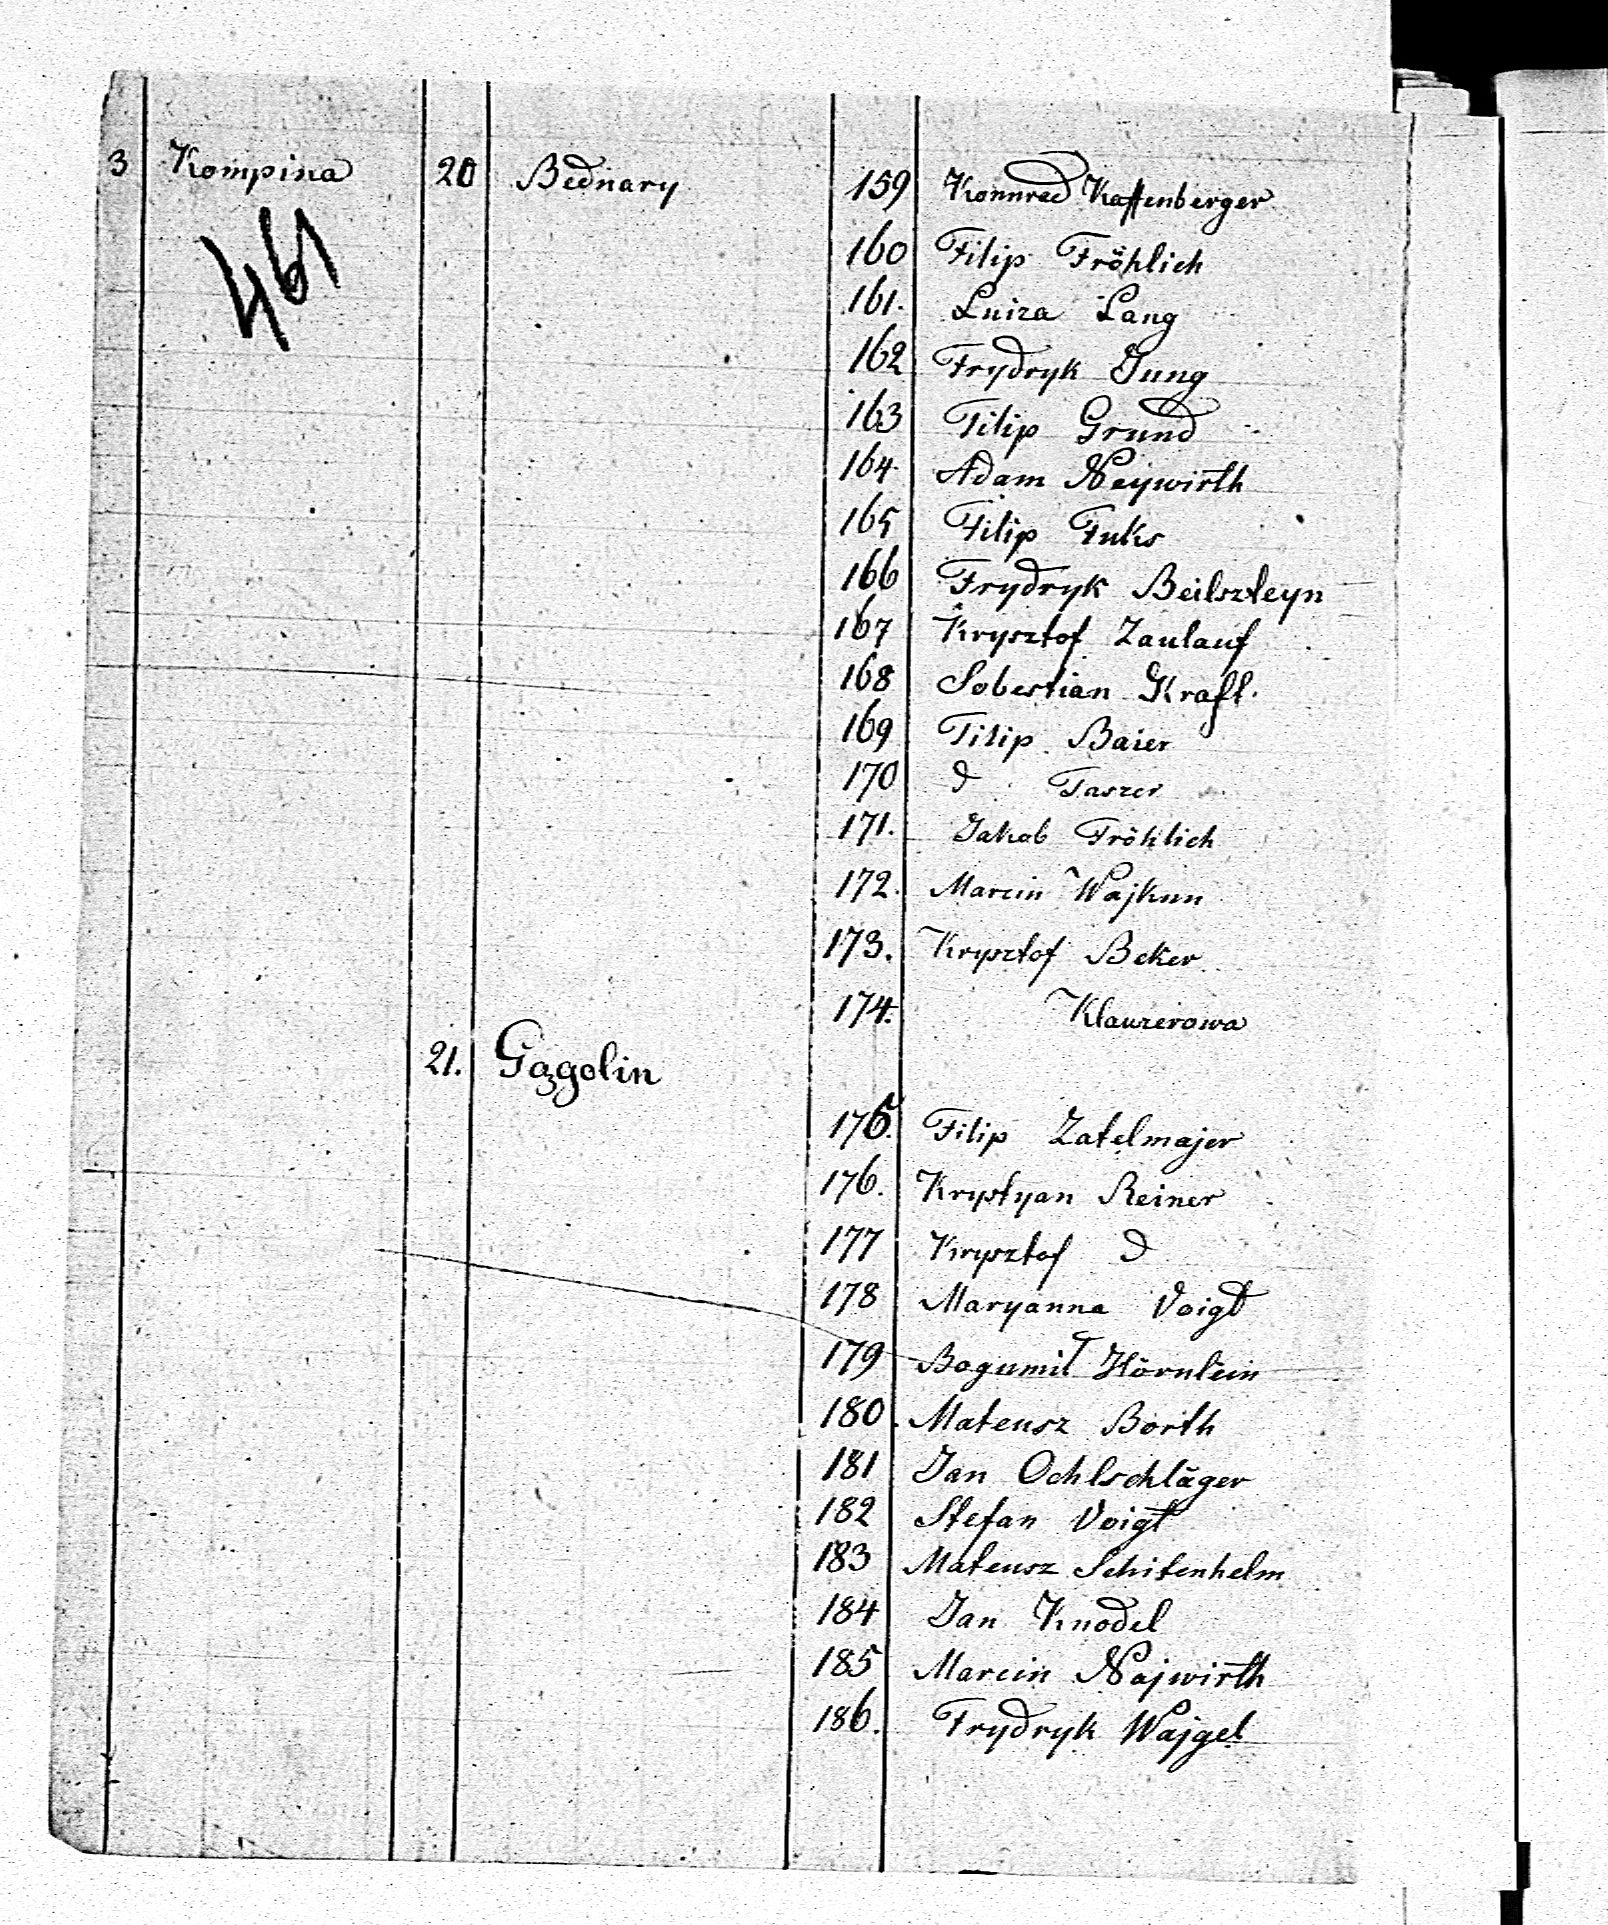 3 Kompina 20 Bednary 159 Konnrad Kaffenberger
461
160 Filip Fröhlich
161. Luiza Lang
162 Frydryk Jung
163 Filip Grund
164. Adam Neywirth
165 Filip Fuks
166 Frydryk Beilszteyn
167 Krysztof Zaulauf
168 Sobestian Kraft.
169 Filip Baier
170 d Faszer
171. Jakob Fröhlich
172. Marcin Wajkun
173. Krysztof Beker
174. Klauzerowa
21. Gągolin
175. Filip Zatelmajer
176. Krystyan Reiner
177 Krysztof d
178 Maryanna Voigt
179 Bogumił Hörnlein
180. Mateusz Borth
181 Jan Oehlschläger
182 Stefan Voigt
183 Mateusz Schitenhelm
184 Jan Knodel
185 Marcin Najwirth
186. Frydryk Wajgel